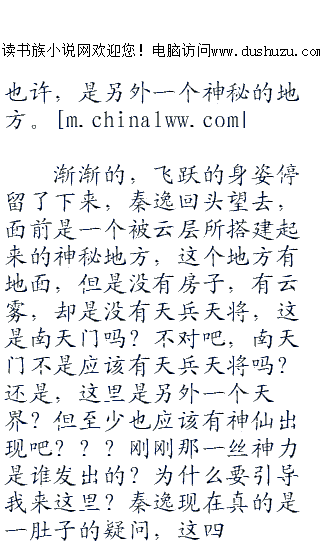 读书族小说网欢迎您！电脑访问www.dushuzu.com
也许，是另外一个神秘的地
方。[m.china1ww.com|
渐渐的，飞跃的身姿停
留了下来，秦逸回头望去，
面前是一个被云层所搭建起
来的神秘地方，这个地方有
地面，但是没有房子，有云
雾，却是没有天兵天将，这
是南天门吗？不对吧，南天
门不是应该有天兵天将吗？
还是，这里是另外一个天
界？但至少也应该有神仙出
现吧？？？刚刚那一丝神力
是谁发出的？为什么要引导
我来这里？秦逸现在真的是
一肚子的疑问，这四